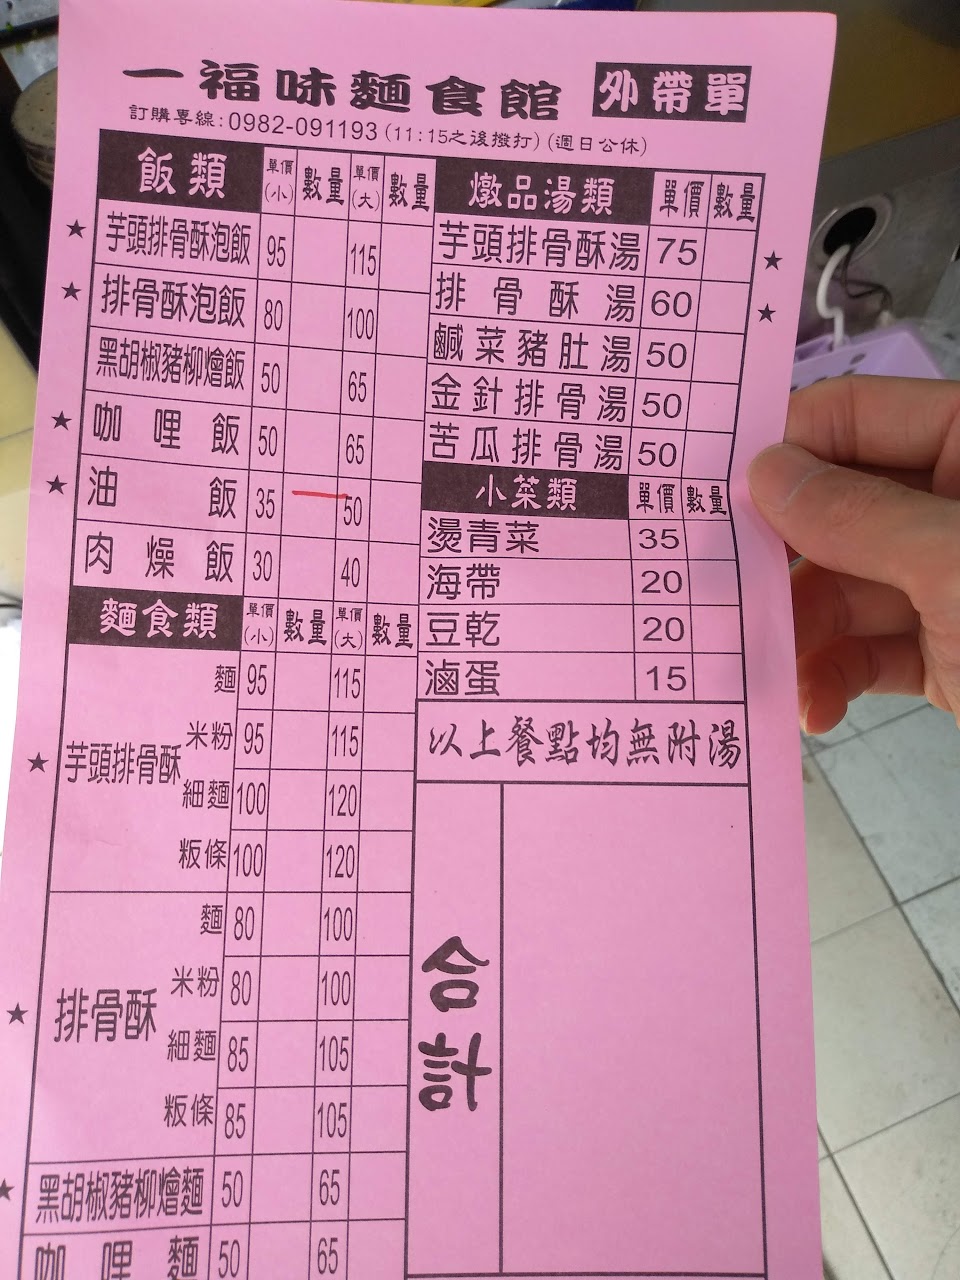 一福味麵食館 外帶單
訂購專線:0982-091193(11:15之後撥打)(週日公休)
飯類 單價(小) 數量 單價(大) 數量
★ 芋頭排骨酥泡飯 95 115
★ 排骨酥泡飯 80 100
黑胡椒豬柳燴飯 50 65
★ 咖哩飯 50 65
★ 油飯 35 50
肉燥飯 30 40
麵食類 單價(小) 數量 單價(大) 數量
★ 芋頭排骨酥
麵 95 115
米粉 95 115
細麵 100 120
粄條 100 120
★ 排骨酥
麵 80 100
米粉 80 100
細麵 85 105
粄條 85 105
★ 黑胡椒豬柳燴麵 50 65
咖哩麵 50 65
燉品湯類 單價 數量
芋頭排骨酥湯 75 ★
排骨酥湯 60 ★
鹹菜豬肚湯 50
金針排骨湯 50
苦瓜排骨湯 50
小菜類 單價 數量
燙青菜 35
海帶 20
豆乾 20
滷蛋 15
以上餐點均無附湯
合計